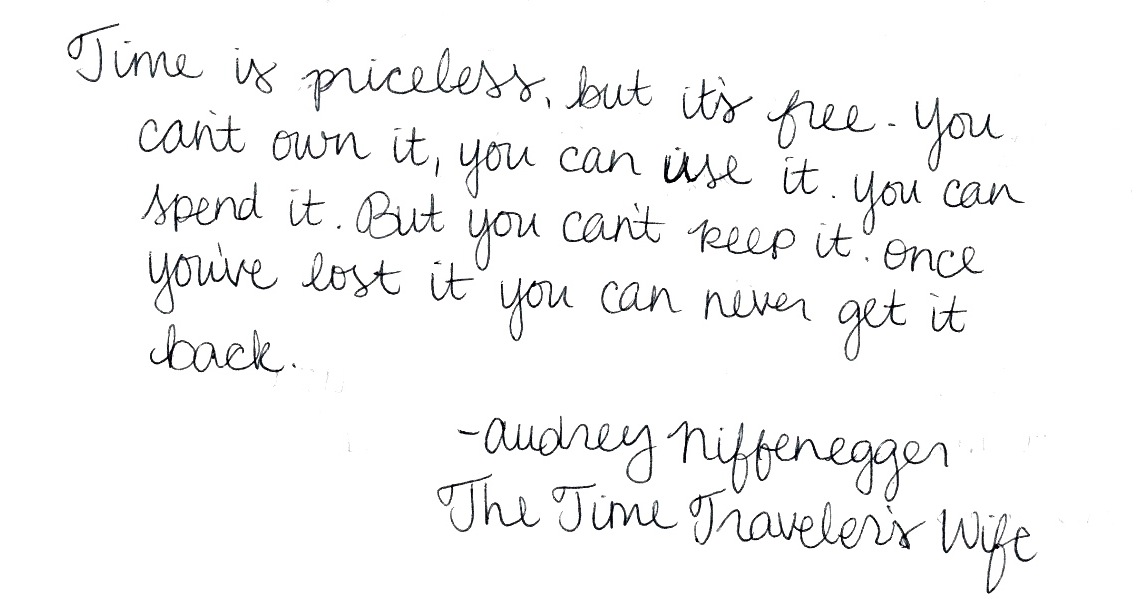 Time is priceless, but it's free. You
can't own it, you can use it. you can
spend it. But you can't keep it. once
you've lost it you can never get it
back.
-audrey Niffenegger
The Time Traveler's Wife